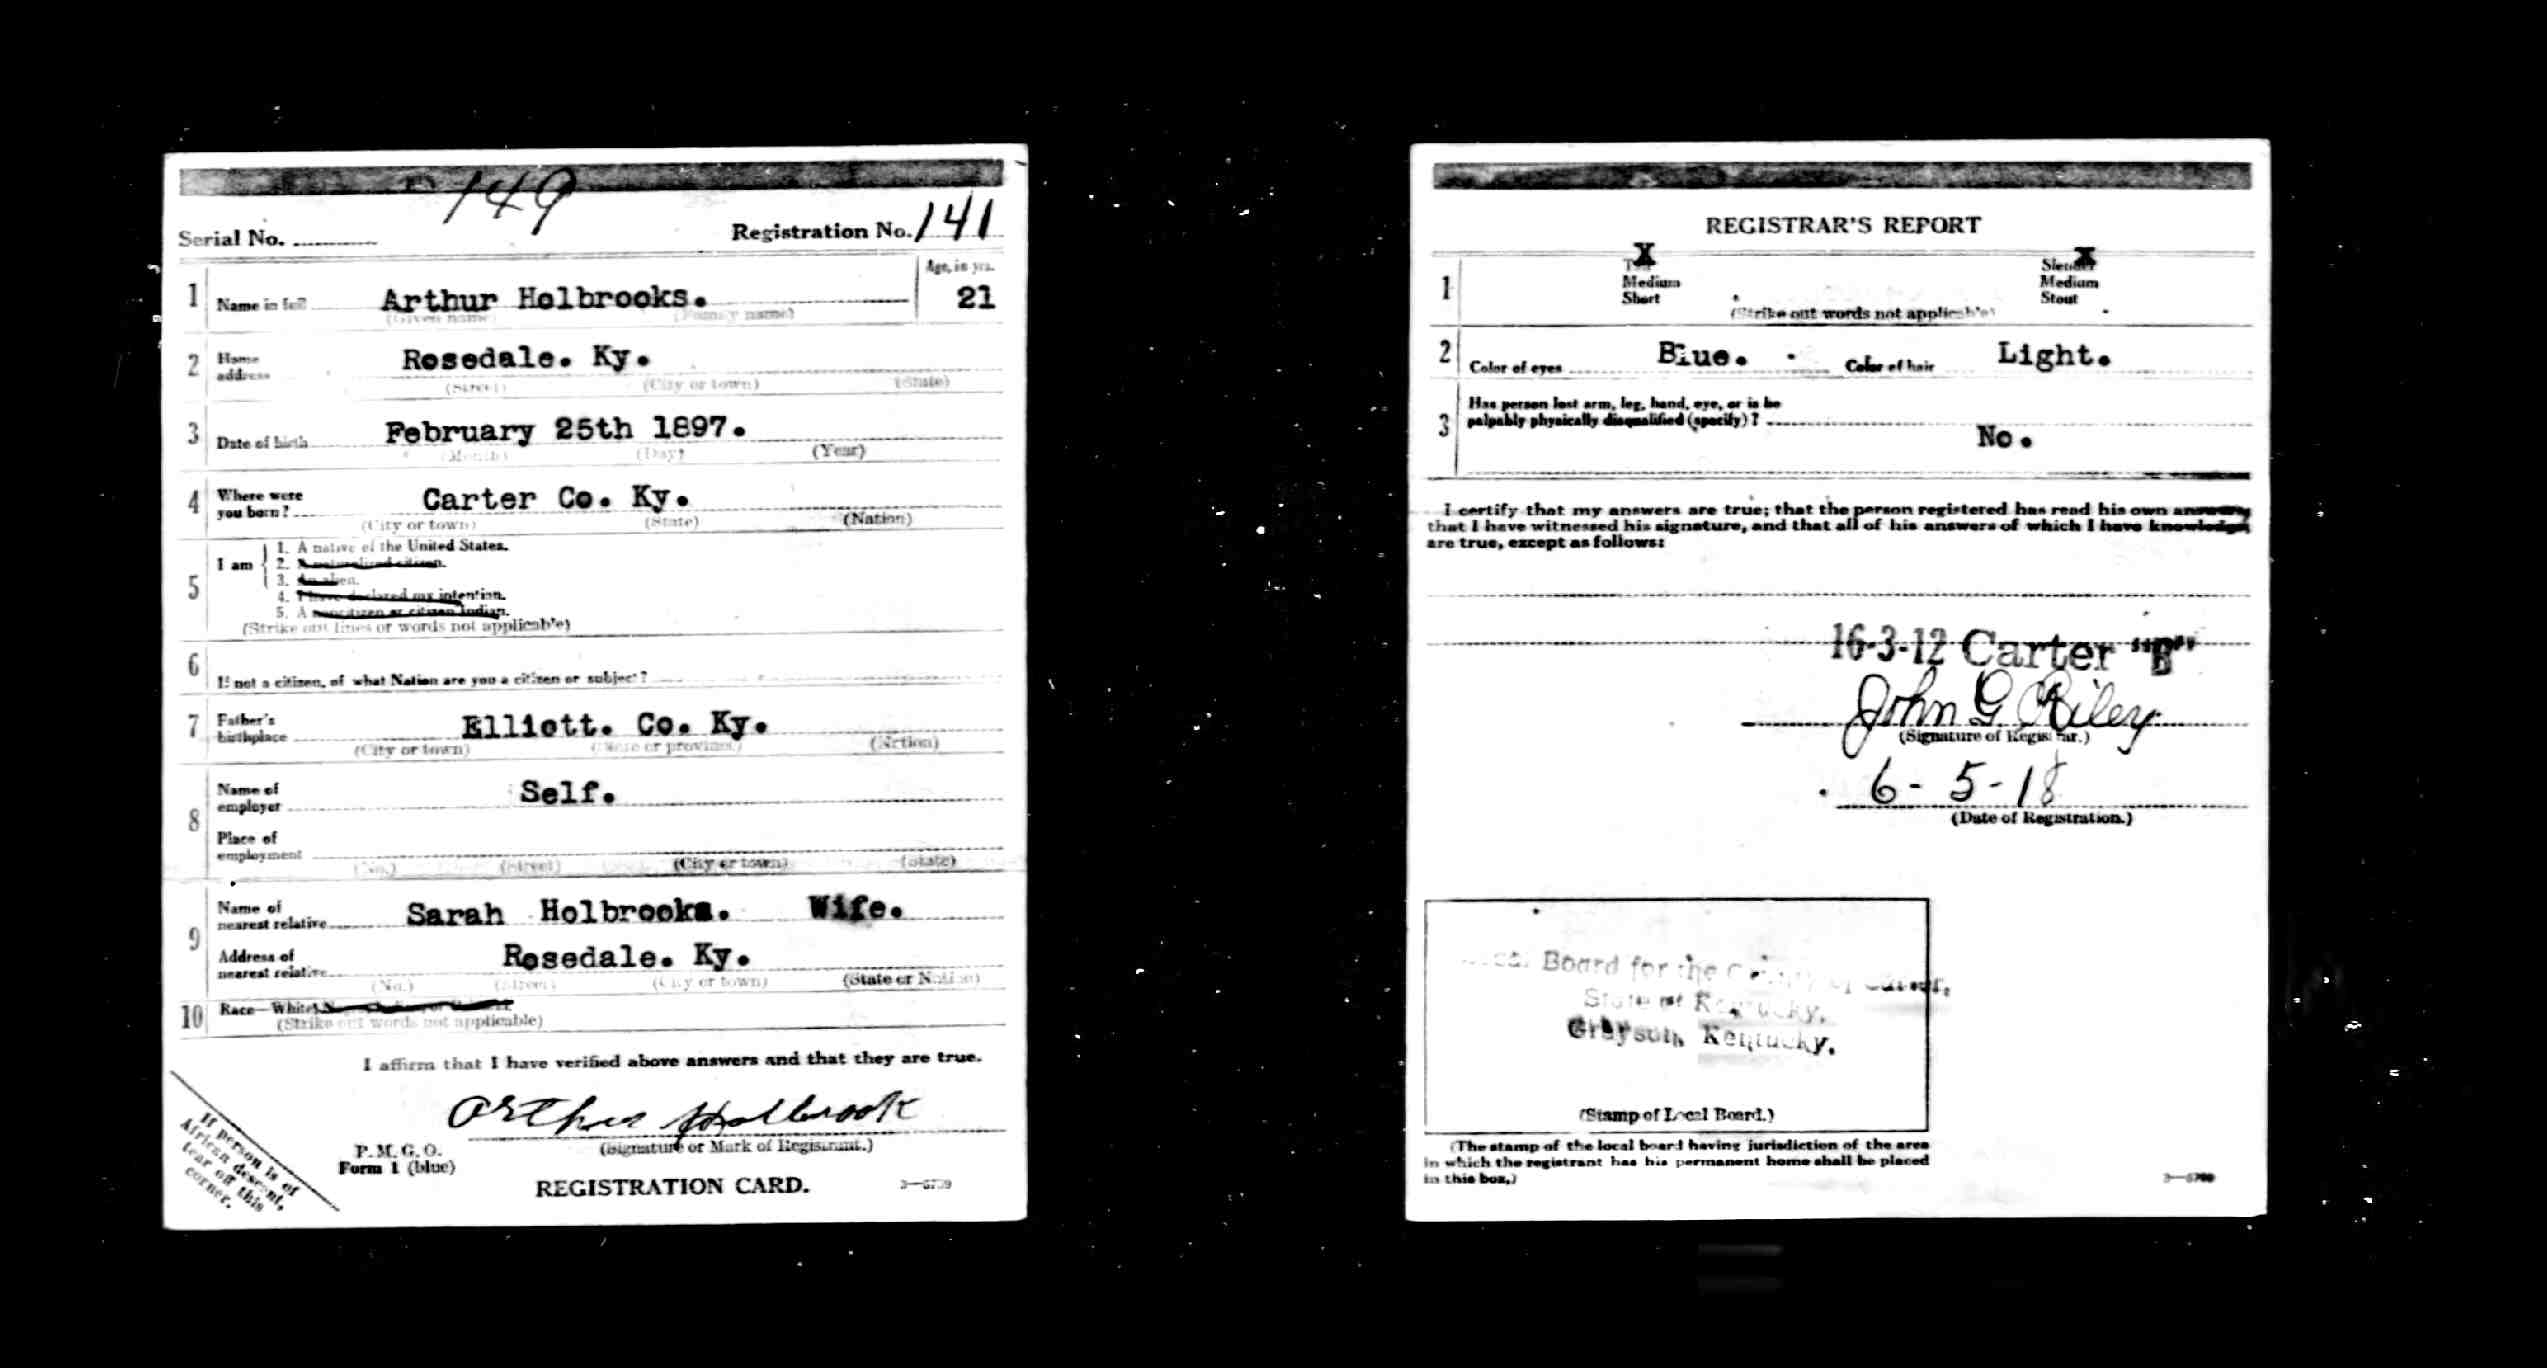 149
Serial No. Registration No. 141
1 Name in full Arthur Holbrooks. Age, in yrs. 21
(Given name) (Family name)
2 Home address Rosedale. Ky.
(Street) (City or town) (State)
3 Date of birth February 25th 1897.
(Month) (Day) (Year)
4 Where were you born? Carter Co. Ky.
(City or town) (State) (Nation)
5 I am
1. A native of the United States.
2. A naturalized citizen.
3. An alien.
4. I have declared my intention.
5. A noncitizen or citizen Indian.
(Strike out lines or words not applicable)
6 If not a citizen, of what Nation are you a citizen or subject?
7 Father's birthplace Elliott. Co. Ky.
(City or town) (State or province) (Nation)
8 Name of employer Self.
Place of employment
(No.) (Street) (City or town) (State)
9 Name of nearest relative Sarah Holbrooks. Wife.
Address of nearest relative Rosedale. Ky.
(No.) (Street) (City or town) (State or Nation)
10 Race—White
(Strike out words not applicable)
I affirm that I have verified above answers and that they are true.
Arthur Holbrook
(Signature or Mark of Registrant.)
P. M. G. O.
Form 1 (blue)
REGISTRATION CARD.
If person is of
African descent,
tear off this
corner.
REGISTRAR'S REPORT
X X
1 Tall Slender
Medium Medium
Short Stout
(Strike out words not applicable)
2 Color of eyes Blue. Color of hair Light.
3 Has person lost arm, leg, hand, eye, or is he
palpably physically disqualified (specify)?
No.
I certify that my answers are true; that the person registered has read his own answers,
that I have witnessed his signature, and that all of his answers of which I have knowledge,
are true, except as follows:
16-3-12 Carter "B"
John G Riley
(Signature of Registrar.)
6-5-18
(Date of Registration.)
Local Board for the County of Carter,
State of Kentucky,
Grayson, Kentucky.
(Stamp of Local Board.)
(The stamp of the local board having jurisdiction of the area
in which the registrant has his permanent home shall be placed
in this box.)